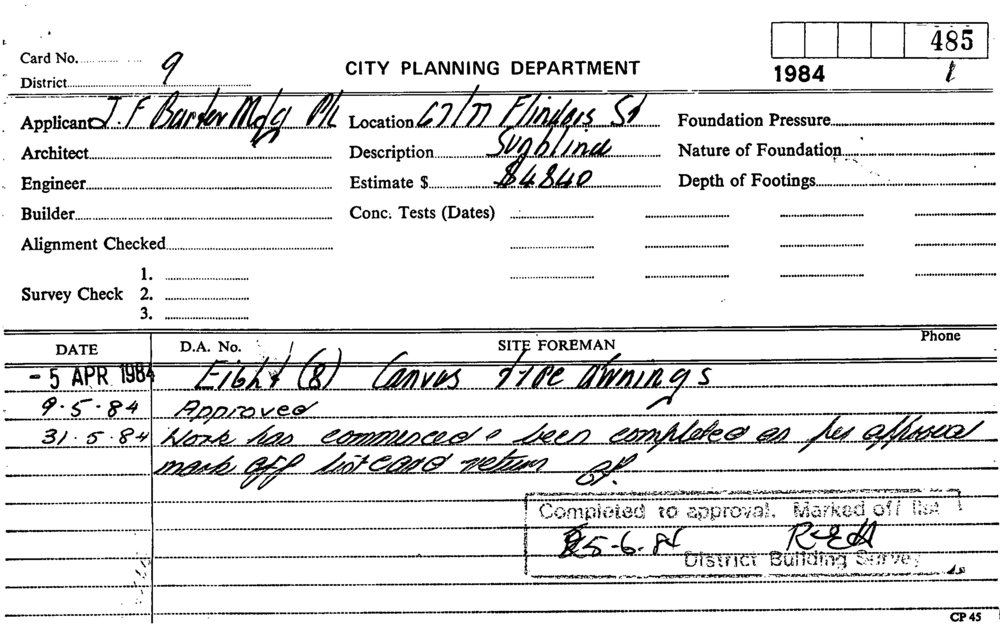 485
Card No. 9
CITY PLANNING DEPARTMENT
1984
District
Applicant J.F Barter Mdg P/L Location 67/77 Flinders St Foundation Pressure
Architect Description Sunblinds Nature of Foundation
Engineer Estimate $ $4840 Depth of Footings
Builder Conc. Tests (Dates)
Alignment Checked
1.
Survey Check 2.
3.
DATE D.A. No. SITE FOREMAN Phone
- 5 APR 1984 Eight (8) Canvas type Awnings
9.5.84 Approved
31.5.84 Work has commenced & been completed as per approval
mark off list card return
Completed to approval. Marked off list
5-6-84
District Building Survey
CP 45